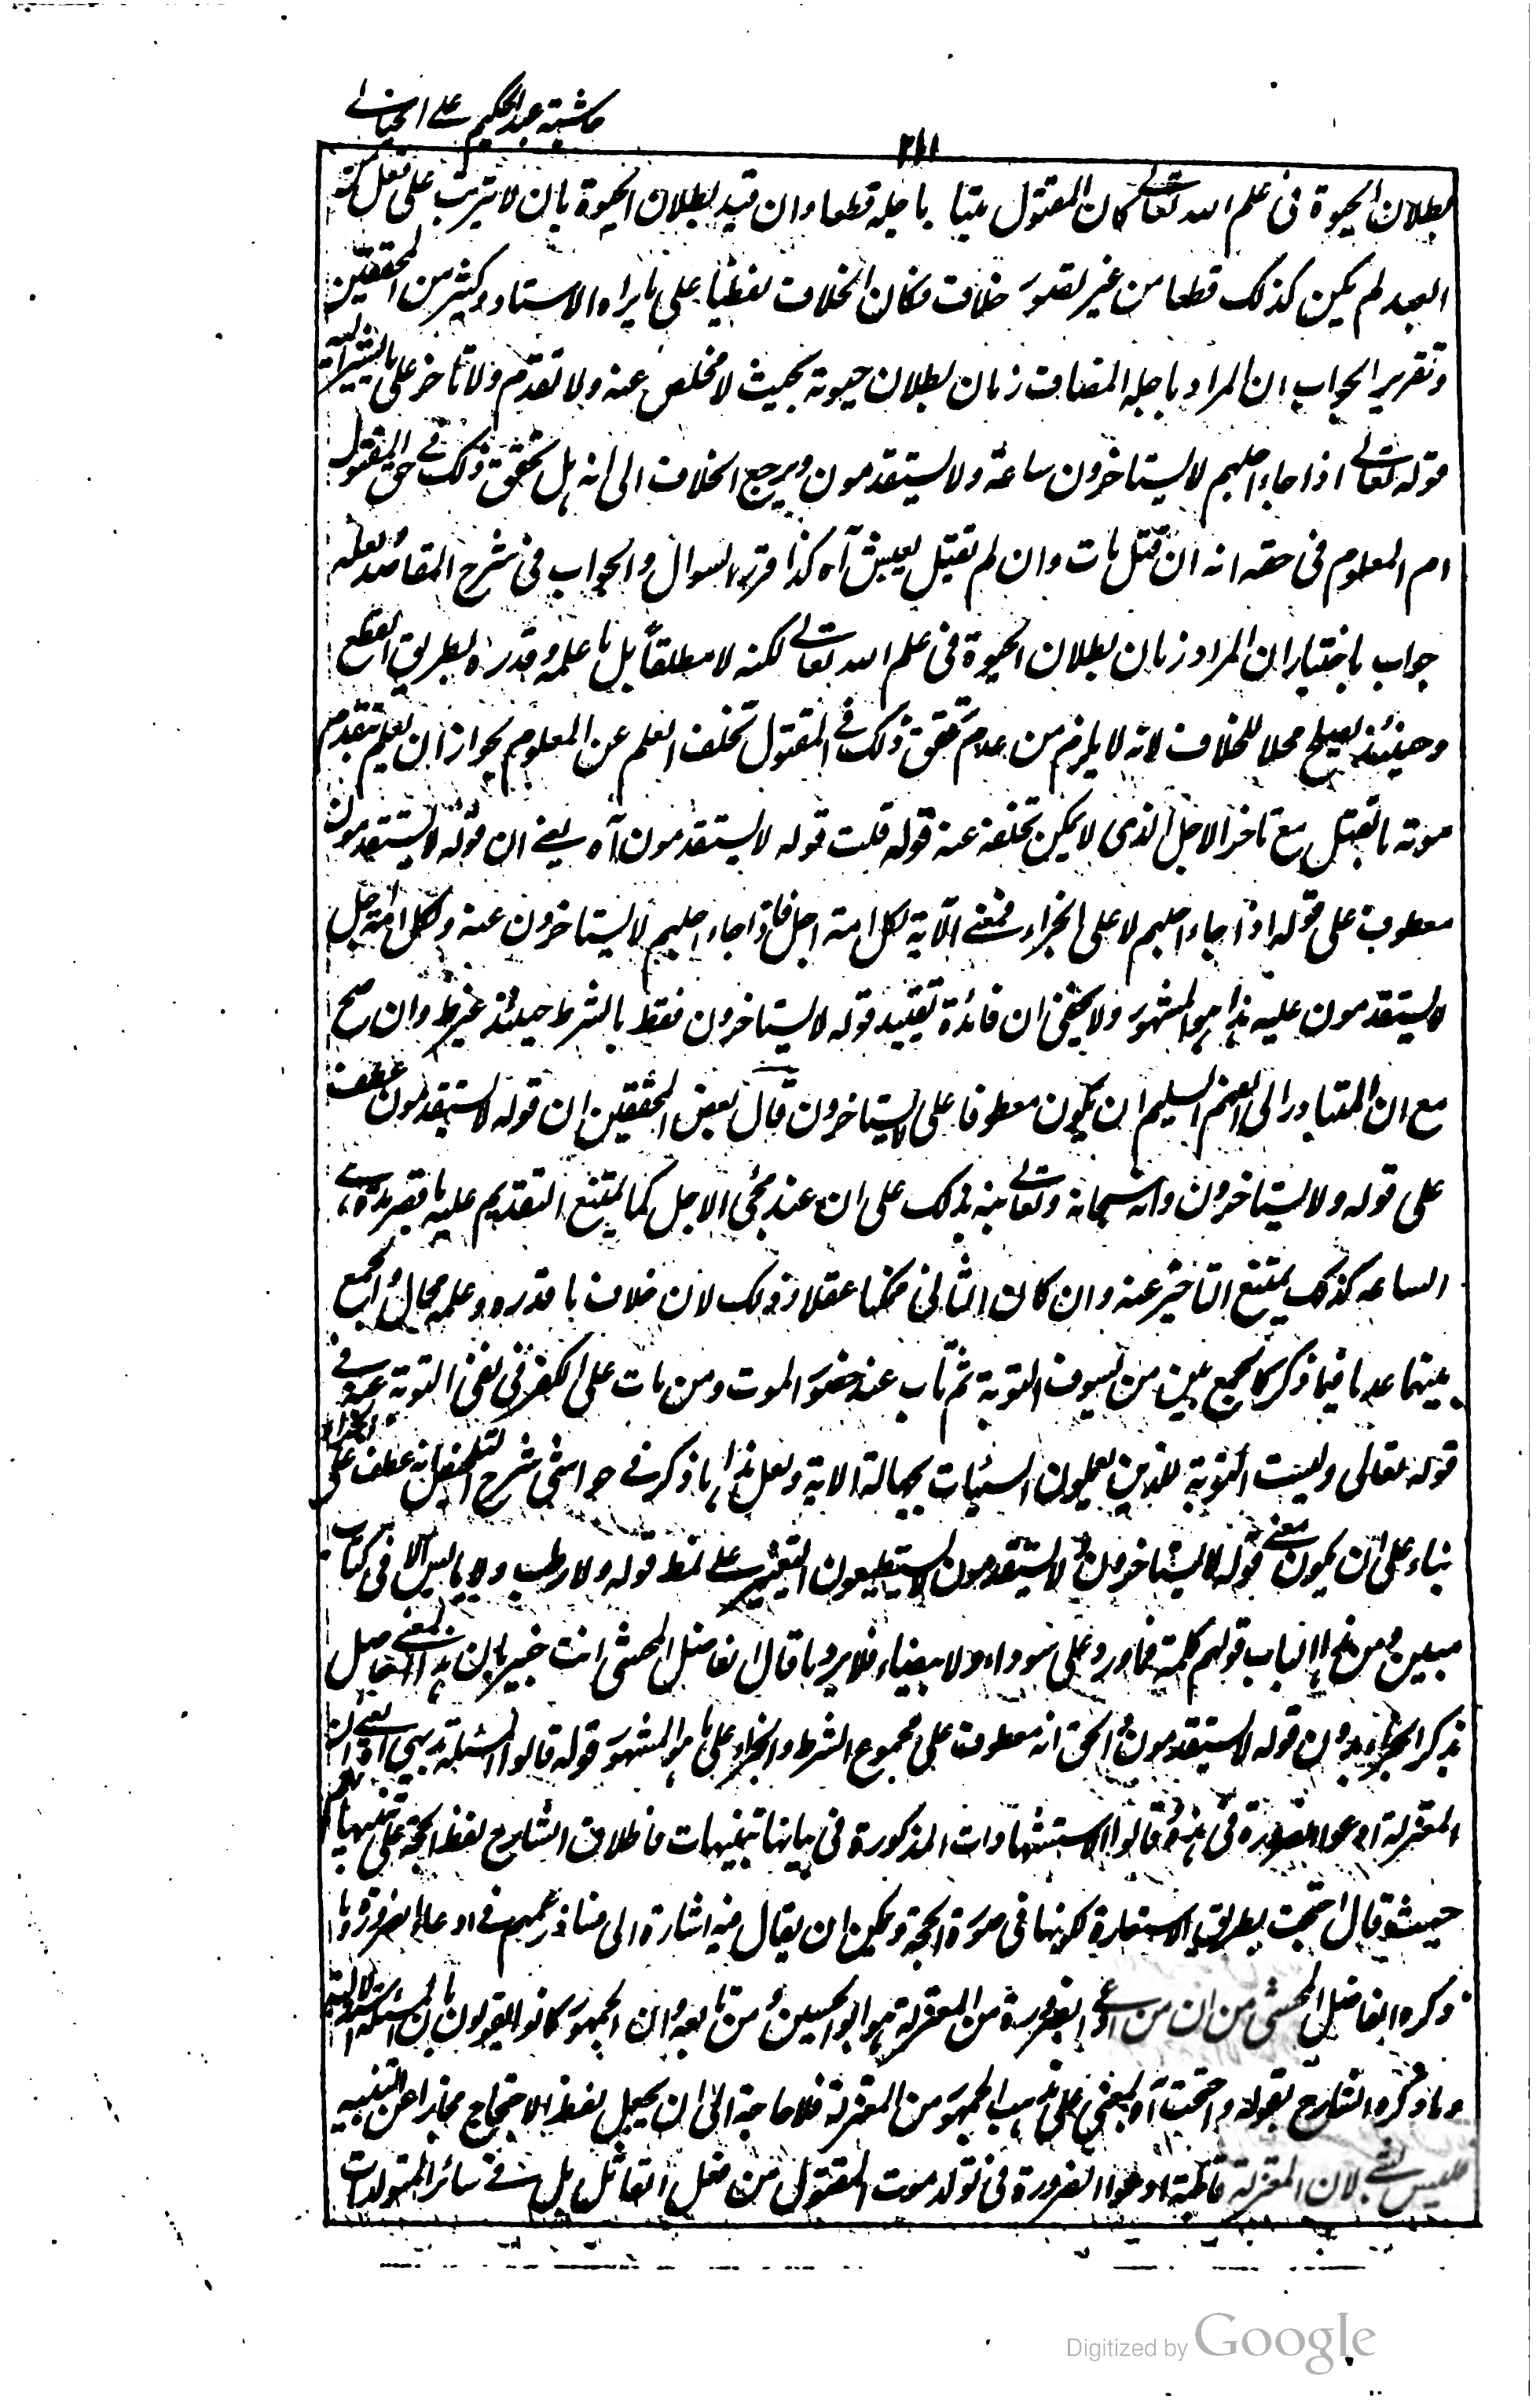 حاشیة عبدالحکیم علی الخیالی
۲۱۱
بطلان الحیوة فی علم الله تعالی کان المقتول میتا باجله قطعا وان قید بطلان الحیوة بان لا یترتب علی فعل منه
العبد لم یکن کذلک قطعا من غیر تصور خلاف فکان الخلاف لفظیا علی ما یراه الاستاد وکثیر من المحققین
وتقریر الجواب ان المراد باجله المضاف زمان بطلان حیوته بحیث لا مخلص عنه ولا تقدم ولا تاخر علی ما یشیر الیه
قوله تعالی اذا جاء اجلهم لا یستاخرون ساعة ولا یستقدمون ویرجع الخلاف الی انه هل تحقق ذلک فی حق المقتول
ام المعلوم فی حقه انه ان قتل مات وان لم یقتل یعیش آه کذا قرر السوال والجواب فی شرح المقاصد لعله
جواب باختیار ان المراد زمان بطلان الحیوة فی علم الله تعالی لکنه لا مطلقا بل ما علمه وقدره بطریق القطع
وحینئذ یصلح محلا للخلاف لانه لا یلزم من عدم تحقق ذلک فی المقتول تخلف العلم عن المعلوم لجواز ان یعلم تقدم
موته بالقتل مع تاخر الاجل الذی لا یمکن تخلفه عنه قوله قلت قوله لا یستقدمون آه یعنی ان قوله لا یستقدمون
معطوف علی قوله اذا جاء اجلهم لا علی الجزاء فمعنی الآیة لکل امة اجل فاذا جاء اجلهم لا یستاخرون عنه ولکل امة اجل
لا یستقدمون علیه هذا هو المشهور ولا یخفی ان فائدة تقیید قوله لا یستاخرون فقط بالشرط حینئذ غیر ظ وان صح
مع ان المتبادر الی الفهم السلیم ان یکون معطوفا علی لا یستاخرون قال بعض المحققین ان قوله لا یستقدمون عطف
علی قوله ولا یستاخرون وانه سبحانه وتعالی نبه بذلک علی ان عند مجئ الاجل کما یمتنع التقدیم علیه باقصر مدة هی
الساعه کذلک یمتنع التاخیر عنه وان کان الثانی ممکنا عقلا وذلک لان خلاف ما قدره وعلمه محال والجمع
بینهما عدا فیما ذکر کالجمع بین من یسوف التوبة ثم تاب عند حضور الموت ومن مات علی الکفر فی نفی التوبة عنه فی
قوله تعالی ولیست التوبة للذین یعملون السیئات بجهالة الایة ولعل هذا ما ذکر فی حواشی شرح التلخیص انه عطف علی الجزاء
بناء علی ان یکون معنی قوله لا یستاخرون ولا یستقدمون لا یستطیعون التغییر علی نمط قوله ولا رطب ولا یابس الا فی کتاب
مبین ومن هذا الباب قولهم کلمته فما رد علی سوداء ولا بیضاء فلا یرد ما قال الفاضل المحشی انت خبیر بان هذا المعنی حاصل
بذکر الجزاء بدون قوله لا یستقدمون والحق انه معطوف علی مجموع الشرط والجزاء علی ما هو المشهور قوله قالوا المسئلة بدیهی آه یعنی ان
المعتزلة ادعوا الضرورة فی هذه وقالوا الاستشهادات المذکورة فی بیانها تنبیهات فاطلاق الشارح لفظ الحجة علی تنبیهاتهم
حیث قال احتجت بطریق الاستعارة لکونها فی صورة الحجة ویمکن ان یقال فیه اشارة الی فساد زعمهم فی ادعاء الضرورة وما
ذکره الفاضل المحشی من ان من ادعی الضرورة من المعتزلة هو ابو الحسین ومن تابعه وان الجمهور کانوا یقولون بان المسئلة استدلالیة
وما ذکره الشارح بقوله واحتجت آه المبنی علی مذهب الجمهور من المعتزلة فلا حاجة الی ان یجعل لفظ الاحتجاج مجازا عن التنبیه
فلیس بشی لان المعتزلة قاطبة ادعوا الضرورة فی تولد موت المقتول من فعل القاتل بل فی سائر المتولدات
Digitized by Google